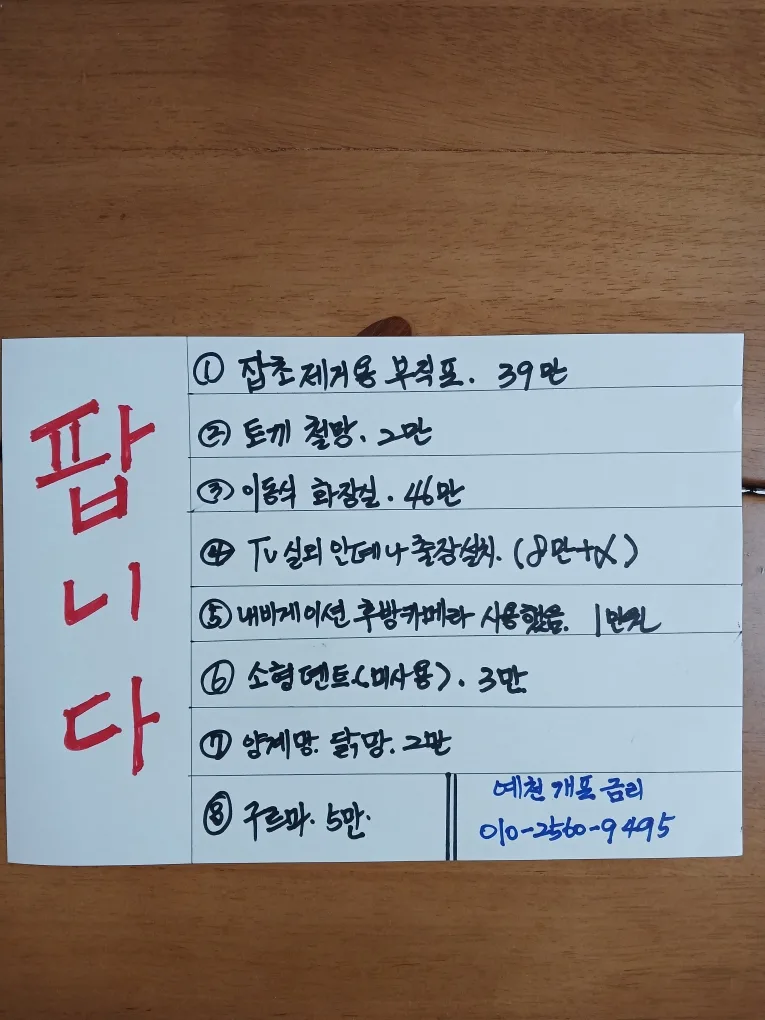 팝니다
① 잡초제거용 부직포. 39만
② 토끼 철망. 2만
③ 이동식 화장실. 46만
④ TV 실외 안테나 출장설치. (8만+α)
⑤ 내비게이션 후방카메라 사용했음. 1만원
⑥ 소형텐트(미사용). 3만
⑦ 양계망. 닭망. 2만
⑧ 구르마. 5만.
예천 개포 금리
010-2560-9495